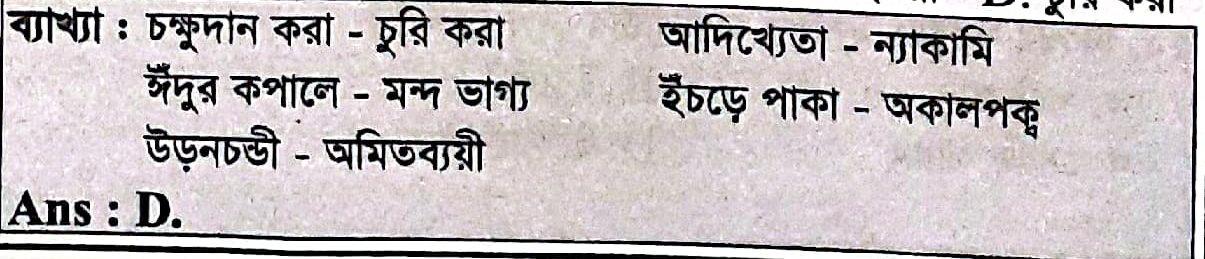 D. চুরি করা
ব্যাখ্যা : চক্ষুদান করা - চুরি করা আদিখ্যেতা - ন্যাকামি
ঈঁদুর কপালে - মন্দ ভাগ্য ইঁচড়ে পাকা - অকালপক্ব
উড়নচন্ডী - অমিতব্যয়ী
Ans : D.